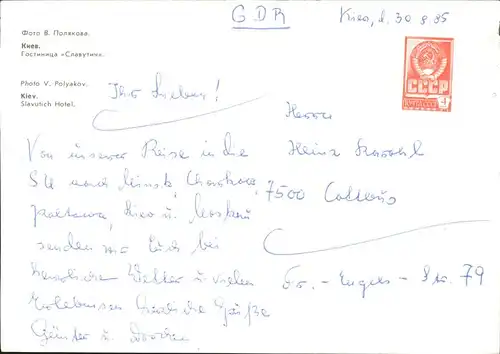 GDR
Kiev, d. 30.8.85
Фото В. Полякова.
Киев.
Гостиница «Славутич».
Photo V. Polyakov.
Kiev.
Slavutich Hotel.
СССР
4
Ihr Lieben!
Von unserer Reise in die
SU nach Minsk, Charkow,
Poltawa, Kiev u. Moskau
senden wir Euch bei
herrliche Wetter u. vielen
Erlebnissen herzliche Grüße
Günter u.
Herrn
Heinz
7500 Cottbus
Fr.-Engels-Str. 79